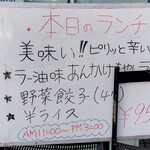 ・本日のランチ
美味い!!ピリッと辛い
★ラー油味あんかけ
★野菜餃子(4
★半ライス
AM11:00〜PM3:00
¥9